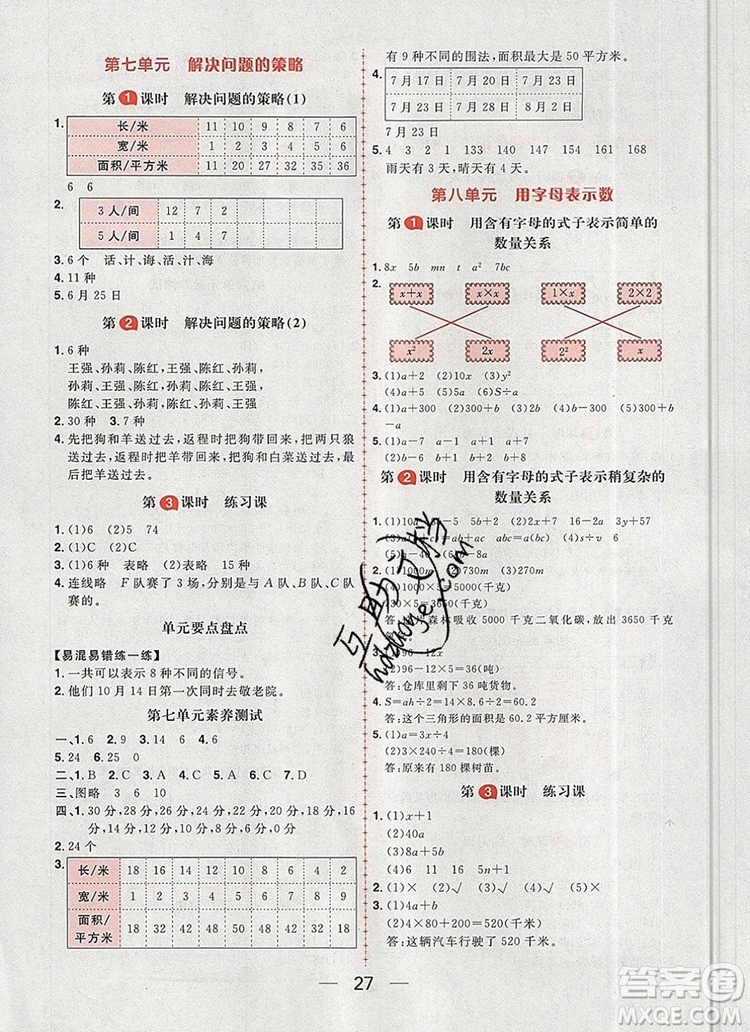 第七单元 解决问题的策略
第1课时 解决问题的策略(1)
1. 长/米 11 10 9 8 7 6
宽/米 1 2 3 4 5 6
面积/平方米 11 20 27 32 35 36
6 6
2. 3人/间 12 7 2
5人/间 1 4 7
3. 6个 话、计、海、活、汁、海
4. 11种
5. 6月25日
第2课时 解决问题的策略(2)
1. 6种
王强、孙莉、陈红,王强、陈红、孙莉,
孙莉、王强、陈红,孙莉、陈红、王强,
陈红、王强、孙莉,陈红、孙莉、王强
2. 30种 3. 7种
4. 先把狗和羊送过去,返程时把狗带回来,把两只狼
送过去,返程时把羊带回来,把狗和白菜送过去,返
程,最后把羊送过去。
第3课时 练习课
1. (1)6 (2)5 74
2. (1)C (2)C
3. (1)6种 表略 (2)6种 表略
4. 连线略 F队赛了3场,分别是与A队、B队、C队
赛的。
单元要点盘点
【易混易错练一练】
1. 一共可以表示8种不同的信号。
2. 他们10月14日第一次同时去敬老院。
第七单元素养测试
一、1. 6 2. 9 3. 14 4. 6
5. 24 6. 25 0
二、1. B 2. A 3. C 4. B 5. A
三、图略 3 6 10
四、1. 30分,28分,26分,24分,20分,18分,16分,
14分,10分,8分,6分,4分
2. 24个
3. 长/米 18 16 14 12 10 8 6 4 2
宽/米 1 2 3 4 5 6 7 8 9
面积/平方米 18 32 42 48 50 48 42 32 18
有9种不同的围法,面积最大是50平方米。
4. 7月17日 7月21日 7月25日
7月23日 7月28日 8月2日
7月23日
5. 4 3 2 133 140 147 154 161 168
雨天有3天,晴天有4天。
第八单元 用字母表示数
第1课时 用含有字母的式子表示简单的
数量关系
1. 8x 5b mn t a² 7bc
2. x+x x×x 1×x 2×2
x² 2x 2² x
3. (1)a+2 (2)10x (3)y²
(4)a+5 (5)6a (6)S÷a
4. (1)a+300 (2)b+300 (3)a+200 (4)b
-a
5. (1)a-b (2)b-6 b+2 b+8
第2课时 用含有字母的式子表示稍复杂的
数量关系
(4)96÷8a
2. (1)1000m (2)730m
(3)96-12×5=36(吨)
答:仓库里剩下36吨货物。
4. S=ah÷2=14×8.6÷2=60.2
答:这个三角形的面积是60.2平方米。
5. (1)a=3x÷4
(2)3×240÷4=180(棵)
答:原来有180棵树苗。
第3课时 练习课
1. (1)x+1
(2)40a
(3)8a+5b
(4)6 11 16 5n+1
2. (1)× (2)√ (3)√ (4)√ (5)×
3. (1)4a+4b
(2)4×80+4×50=520(千米)
答:这辆汽车行驶了520千米。
互助文档
hdzhome.com
27
答案圈
MXQE.COM